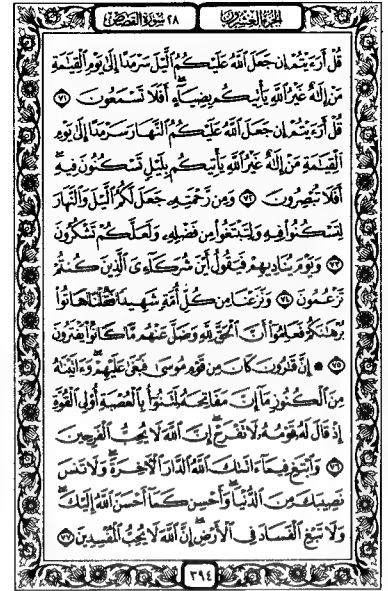 الجزء العشرون
٢٨ سورة القصص
قُلْ أَرَءَيْتُمْ إِن جَعَلَ ٱللَّهُ عَلَيْكُمُ ٱلَّيْلَ سَرْمَدًا إِلَىٰ يَوْمِ ٱلْقِيَٰمَةِ
مَنْ إِلَٰهٌ غَيْرُ ٱللَّهِ يَأْتِيكُم بِضِيَآءٍ ۖ أَفَلَا تَسْمَعُونَ ٧١
قُلْ أَرَءَيْتُمْ إِن جَعَلَ ٱللَّهُ عَلَيْكُمُ ٱلنَّهَارَ سَرْمَدًا إِلَىٰ يَوْمِ
ٱلْقِيَٰمَةِ مَنْ إِلَٰهٌ غَيْرُ ٱللَّهِ يَأْتِيكُم بِلَيْلٍ تَسْكُنُونَ فِيهِ ۖ
أَفَلَا تُبْصِرُونَ ٧٢ وَمِن رَّحْمَتِهِۦ جَعَلَ لَكُمُ ٱلَّيْلَ وَٱلنَّهَارَ
لِتَسْكُنُوا۟ فِيهِ وَلِتَبْتَغُوا۟ مِن فَضْلِهِۦ وَلَعَلَّكُمْ تَشْكُرُونَ
٧٣ وَيَوْمَ يُنَادِيهِمْ فَيَقُولُ أَيْنَ شُرَكَآءِىَ ٱلَّذِينَ كُنتُمْ
تَزْعُمُونَ ٧٤ وَنَزَعْنَا مِن كُلِّ أُمَّةٍ شَهِيدًا فَقُلْنَا هَاتُوا۟
بُرْهَٰنَكُمْ فَعَلِمُوٓا۟ أَنَّ ٱلْحَقَّ لِلَّهِ وَضَلَّ عَنْهُم مَّا كَانُوا۟ يَفْتَرُونَ
٧٥ ۞ إِنَّ قَٰرُونَ كَانَ مِن قَوْمِ مُوسَىٰ فَبَغَىٰ عَلَيْهِمْ ۖ وَءَاتَيْنَٰهُ
مِنَ ٱلْكُنُوزِ مَآ إِنَّ مَفَاتِحَهُۥ لَتَنُوٓأُ بِٱلْعُصْبَةِ أُو۟لِى ٱلْقُوَّةِ
إِذْ قَالَ لَهُۥ قَوْمُهُۥ لَا تَفْرَحْ ۖ إِنَّ ٱللَّهَ لَا يُحِبُّ ٱلْفَرِحِينَ
٧٦ وَٱبْتَغِ فِيمَآ ءَاتَىٰكَ ٱللَّهُ ٱلدَّارَ ٱلْءَاخِرَةَ ۖ وَلَا تَنسَ
نَصِيبَكَ مِنَ ٱلدُّنْيَا ۖ وَأَحْسِن كَمَآ أَحْسَنَ ٱللَّهُ إِلَيْكَ ۖ
وَلَا تَبْغِ ٱلْفَسَادَ فِى ٱلْأَرْضِ ۖ إِنَّ ٱللَّهَ لَا يُحِبُّ ٱلْمُفْسِدِينَ ٧٧
٣٩٤